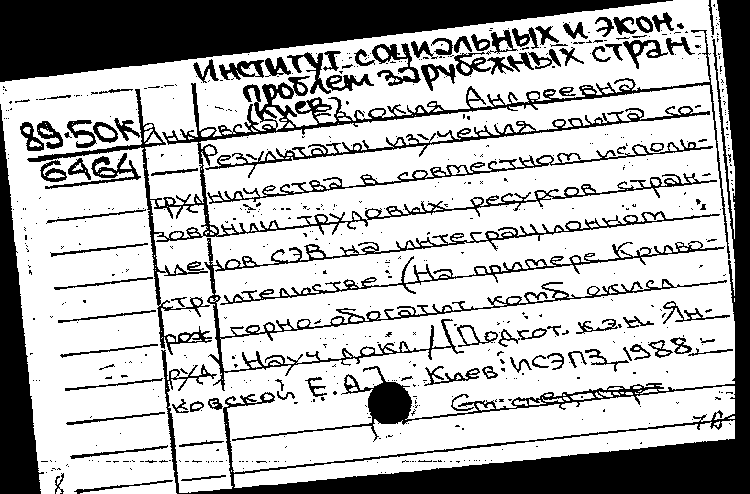 Институт социальных и экон.
проблем зарубежных стран
(Киев).
89-50К
6464
Янковская, Евдокия Андреевна.
Результаты изучения опыта со-
трудничества в совместном исполь-
зовании трудовых ресурсов стран-
членов СЭВ на интеграционном
строительстве: (На примере Криво-
рож. горно-обогатит. комб. окисл.
руд): Науч. докл. / [Подгот. к.э.н. Ян-
ковской Е.А.] - Киев: ИСЭПЗ, 1988.-
См. след. карт.
8